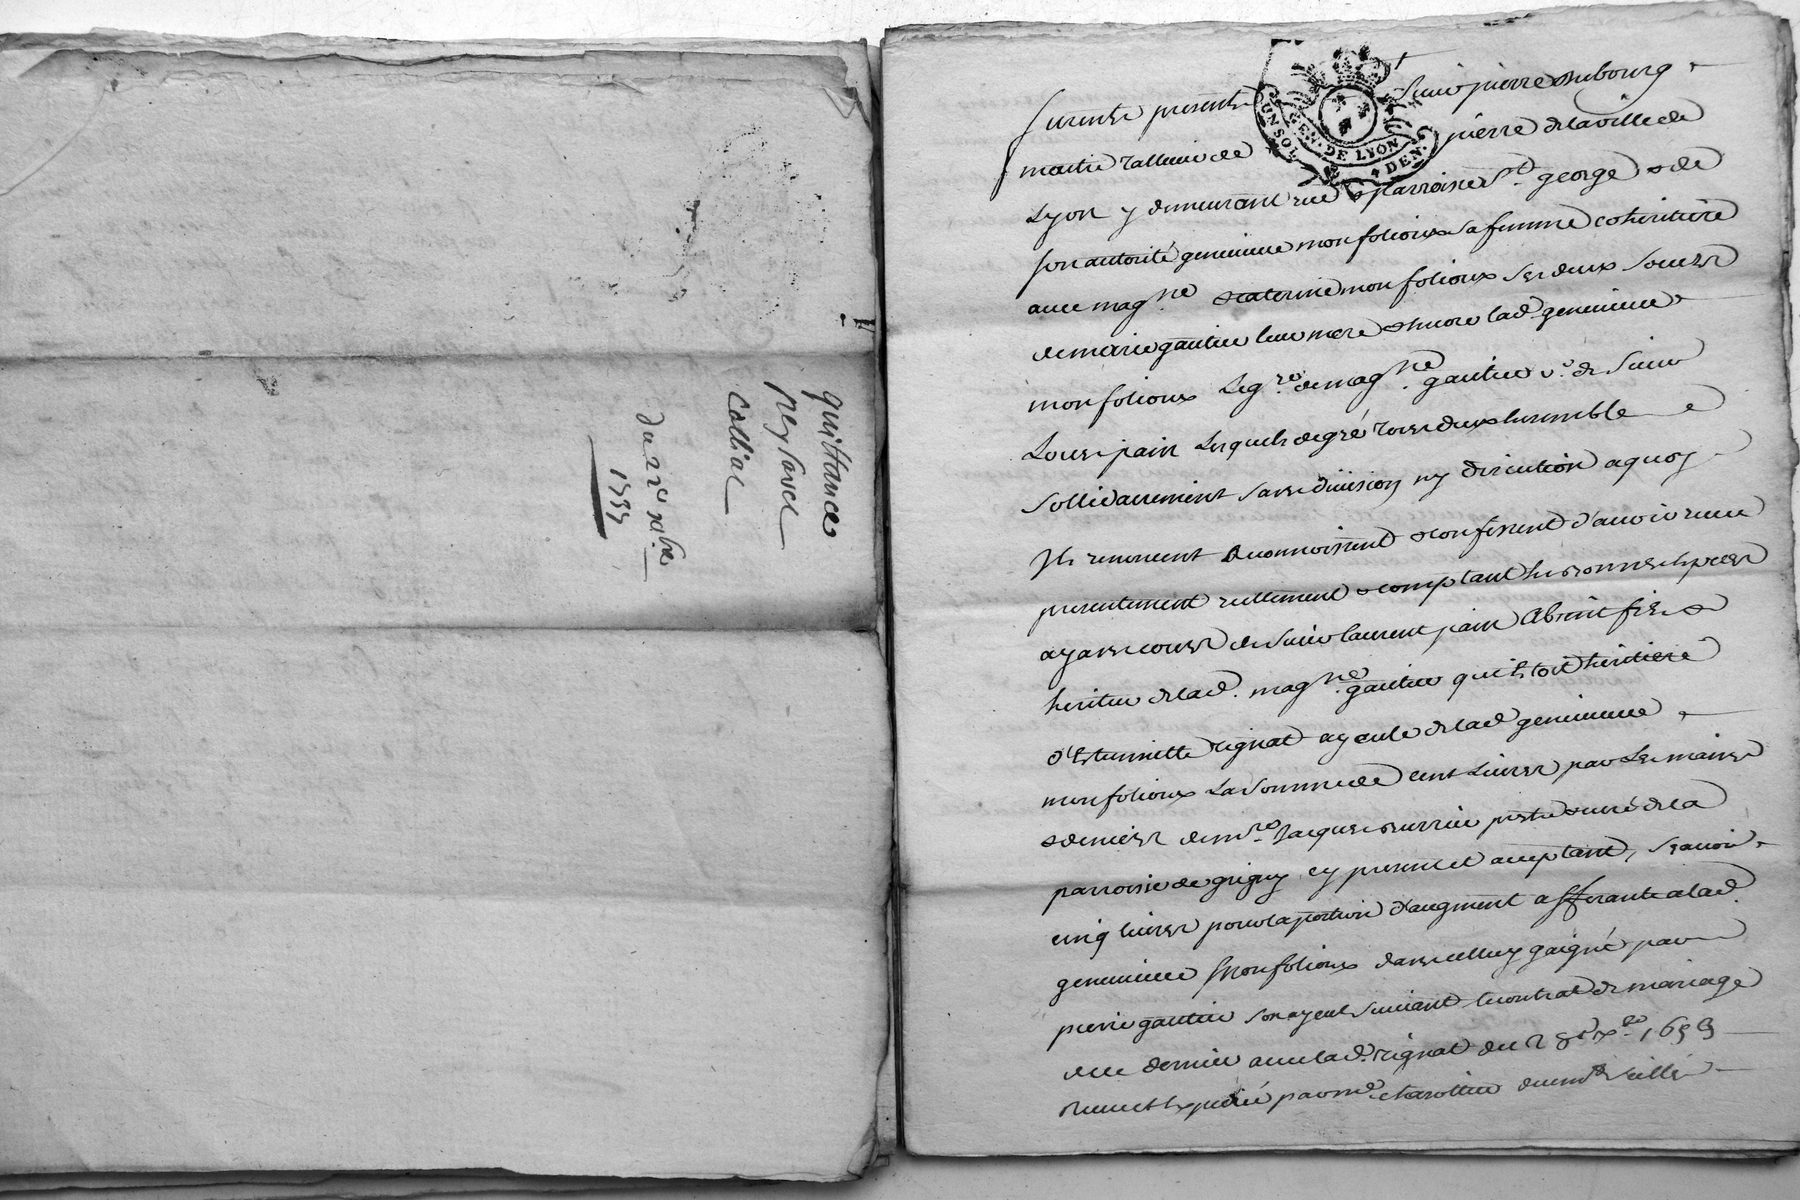 quittance
peysavel
Colliac
du 22e xbre
Furent presents Sieur pierre dubourg
maitre tallieur de pierre de la ville de
Lyon y demeurant rue & parroisse St george & de
son autorité genevieve monfolioux sa femme coheritiere
avec magne & caterine monfolioux ses deux soeurs
de marie gautier leur mere & encore lad. genevieve
monfolioux Legre de magne gautier ve de Sieur
Louis pain Lesquels de gré tous deux ensemble
sollidairement sans division ny discution a quoy
Ils renoncent reconnoissent & confessent d'avoir receu
presentement reellement & comptant en bonnes especes
ayans cours de Sieur laurent pain absent fils &
heritier de lad. magne gautier qui etoit heritiere
d'Estiennette rignat ayeule de lad genevieve
monfolioux La somme de cent Livres par Les mains
& deniers de mre Jacques pretre & curé de la
parroisse de grigny cy present et acceptant, scavoir
cinq livres pour la portion d'augment afferante a lad.
genevieve Monfolioux dans celluy gaigné par
pierre gautier son ayeul suivant le contrat de mariage
de ce dernier avec lad. rignat du 28e xbre
receu et expedié par me charottier
UN SOL
GEN. DE LYON
4 DEN.